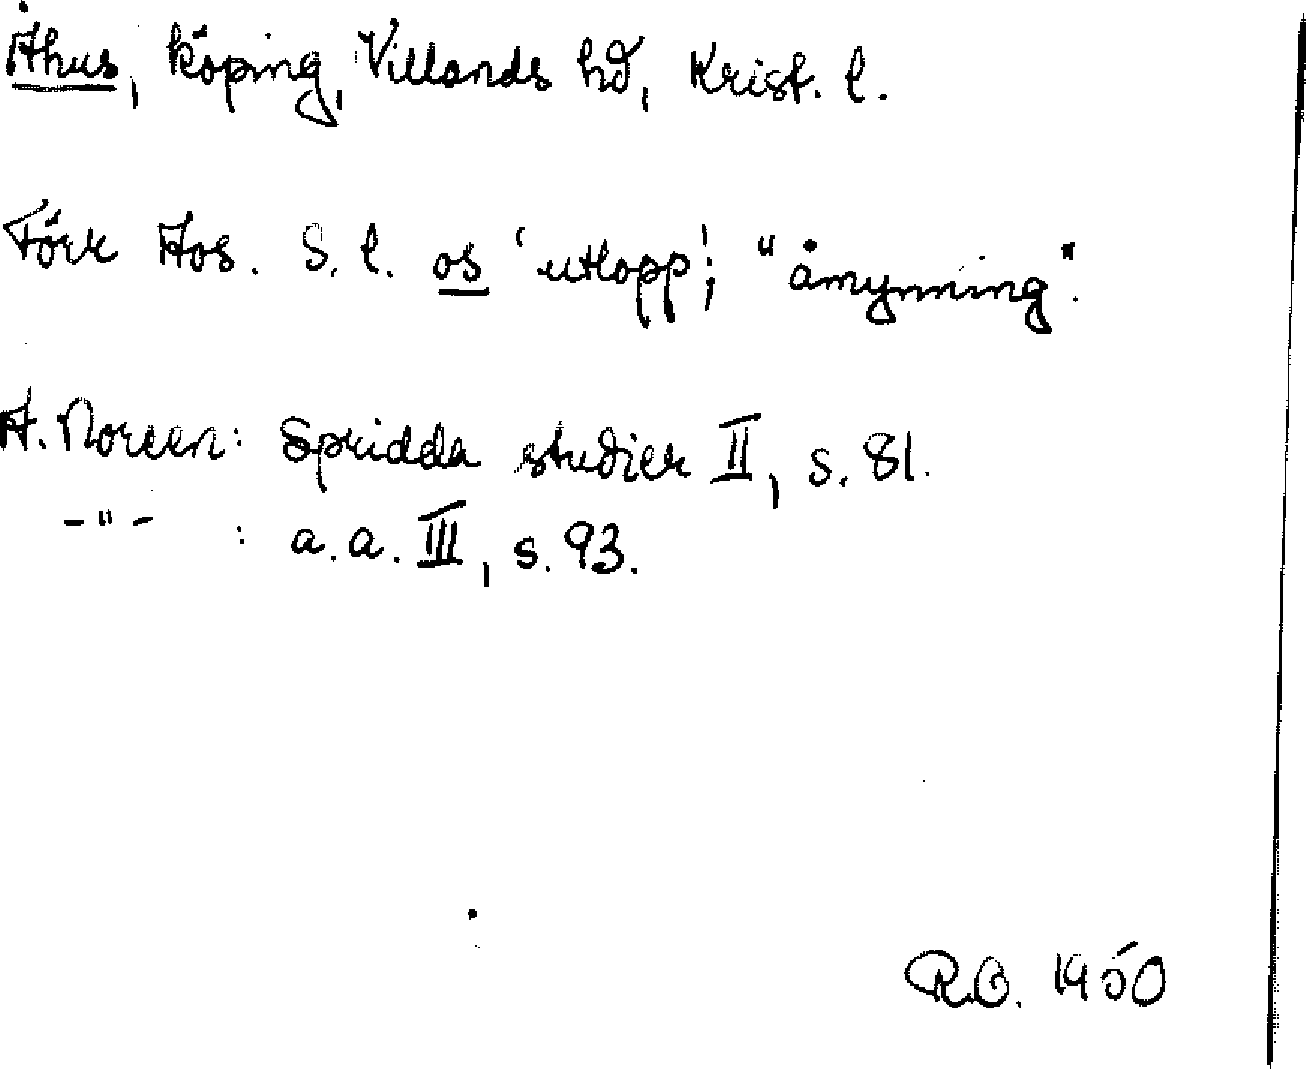 Åhus, köping, Villands hd, Krist. l.
Förr Aos. S. l. os 'utlopp'; "åmynning".
A. Noreen: Spridda studier II, s. 81.
-"- : a.a. III, s. 93.
R.O. 1950